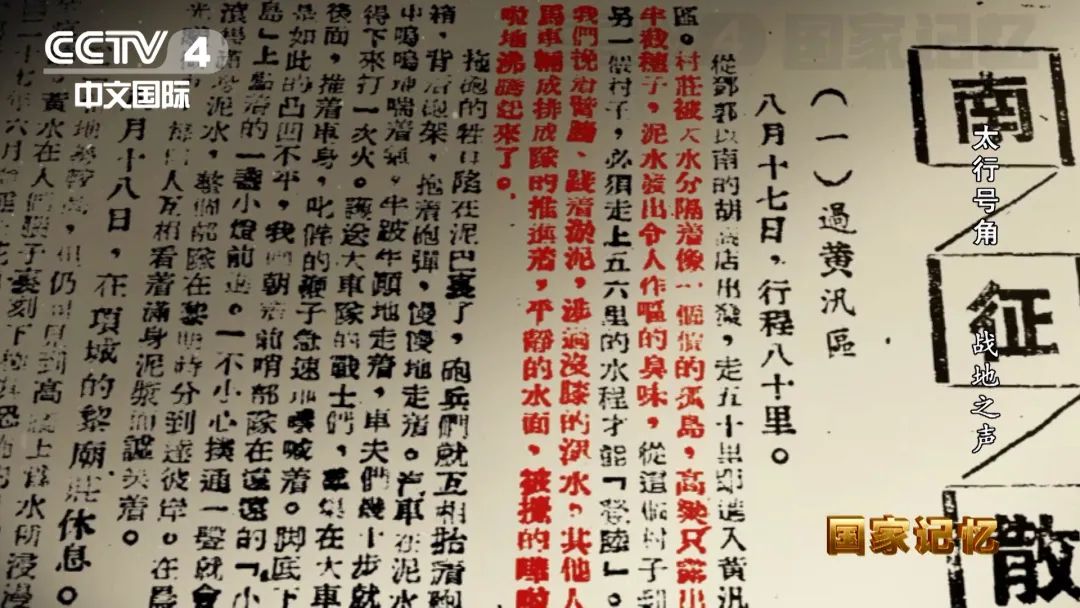 CCTV 4
中文国际
国家记忆
南
征
散
太行号角
战地之声
（一）過黄汎區
八月十七日，行程八十里。
從鄧郭以南的胡店出發，走五十里即進入黄汎
區。村莊被大水分隔着像一個個的孤島，高粱只露出
半截穗子，泥水發出令人作嘔的臭味，從這個村子到
另一個村子，必須走上五六里的水程才能「登陸」。
我們挽着臂膀、踐着淤泥，涉過沒膝的深水，其他人
馬車輛成排成隊的推進着，平靜的水面，被攪的嘩啦
啦地沸騰起來了。
拖砲的牲口陷在泥巴裏了，砲兵們就互相抬着砲
箱，背着砲架，抱着砲彈，慢慢地走着。汽車在泥水
中嗚嗚地喘着氣，牛跛牛顛地走着，車夫們幾十步就
得下來打一次火。護送大車隊的戰士們，在大車
後面，推着車身，叱的鞭子急速地喊着。脚底下
是如此的凸凹不平，我們朝着前哨部隊在遠遠的「小
島」上點着的一盞小燈前進。一不小心撲通一聲就會
滿身泥水，整個部隊在黎明時分到達彼岸。在晨
光人互相看着滿身泥漿而謔笑着。
月十八日，在項城的黎廟莊休息。
地仍可見到高牆上水所浸漫
黄水在人們裏刻下
二十七年六月
国家记忆